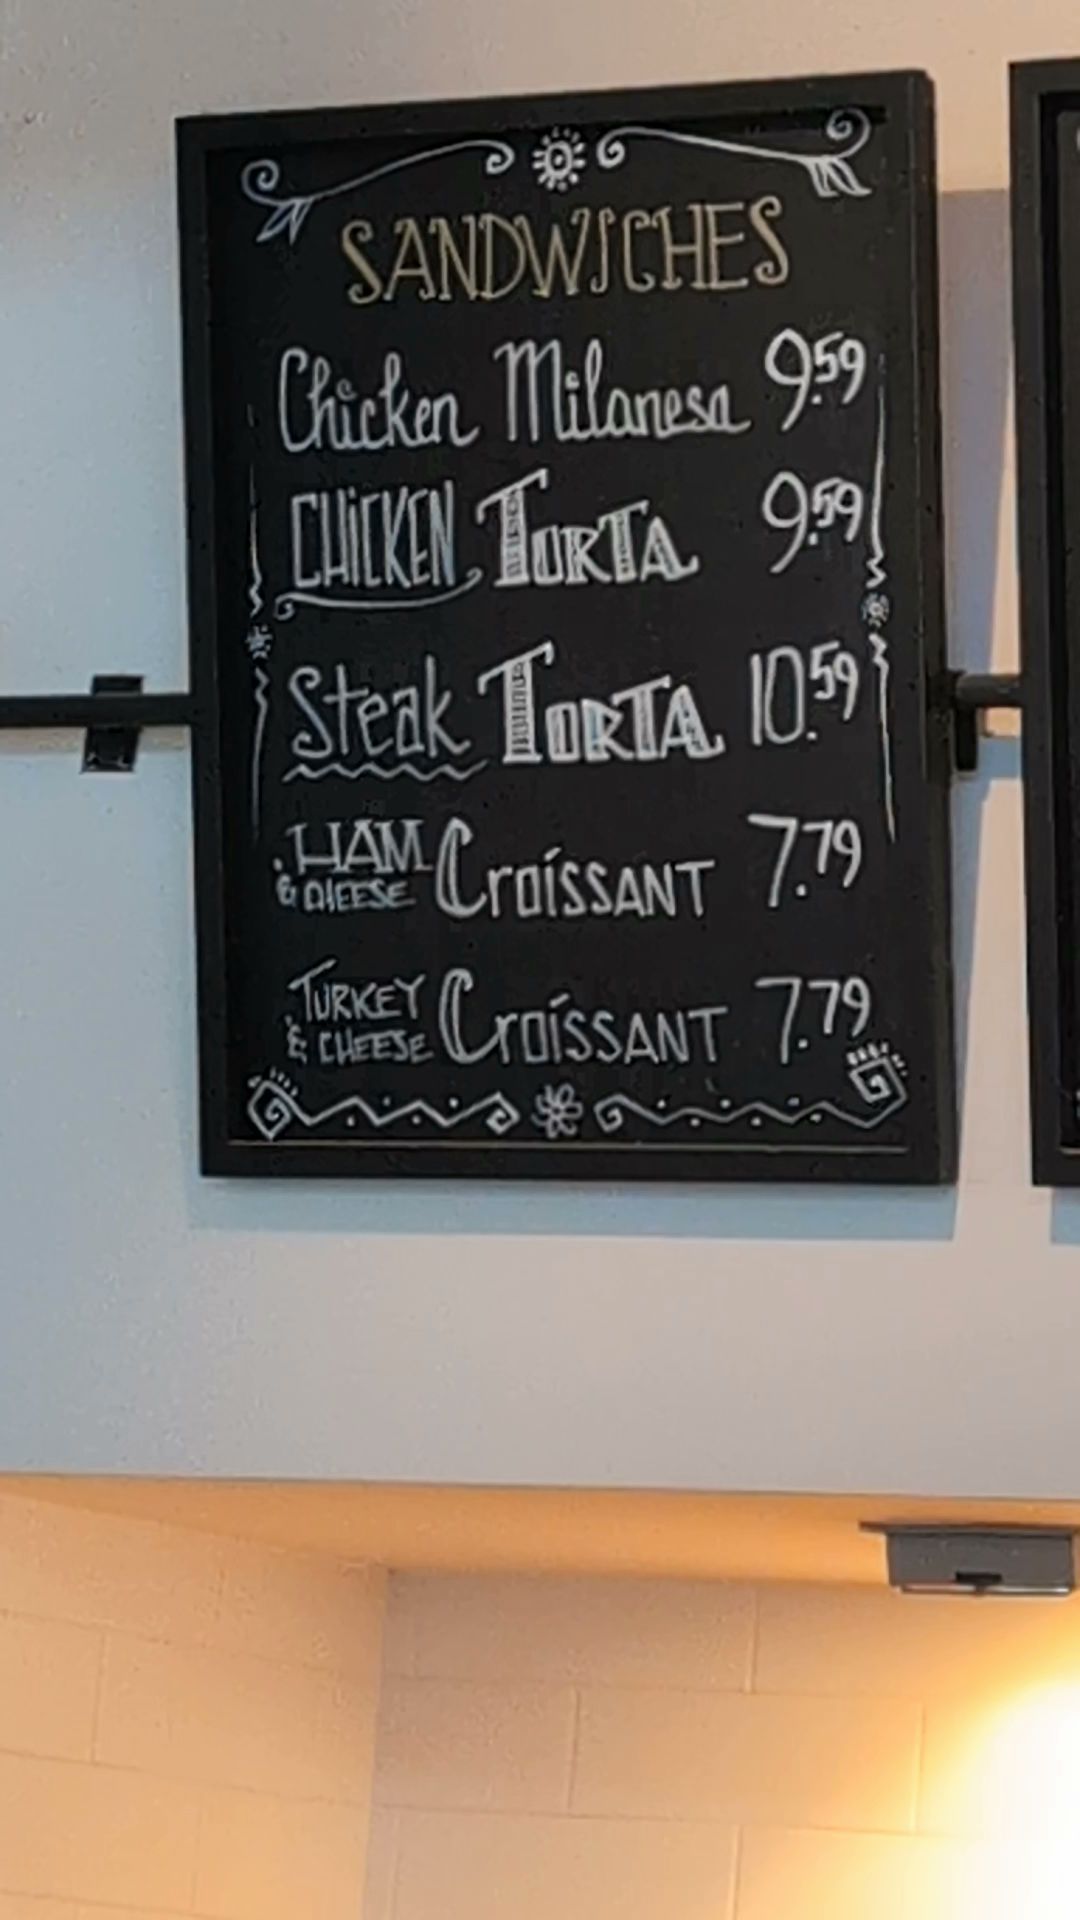 SANDWICHES
Chicken Milanesa 9.59
CHiCKEN TORTA 9.59
Steak TORTA 10.59
HAM & CHEESE CroíSSANT 7.79
TURKEY & CHEESE CroíSSANT 7.79